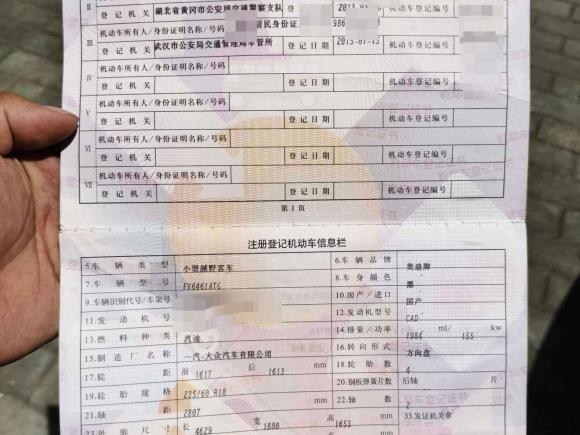 II 登记机关 湖北省黄冈市公安局交通警察支队 登记日期 机动车登记编号
机动车所有人/身份证明名称/号码 居民身份证 986
III 登记机关 武汉市公安局交通管理局车管所 登记日期 2013-01-13 机动车登记编号
机动车所有人/身份证明名称/号码
IV 登记机关 登记日期 机动车登记编号
机动车所有人/身份证明名称/号码
V 登记机关 登记日期 机动车登记编号
机动车所有人/身份证明名称/号码
VI 登记机关 登记日期 机动车登记编号
机动车所有人/身份证明名称/号码
VII 登记机关 登记日期 机动车登记编号
第1页
注册登记机动车信息栏
5.车辆类型 小型越野客车 6.车辆品牌 奥迪牌
7.车辆型号 FV6461ATG 8.车身颜色 黑
9.车辆识别代号/车架号 10.国产/进口 国产
11.发动机号 12.发动机型号 CAD
13.燃料种类 汽油 14.排量/功率 1984 ml/ 155 kw
15.制造厂名称 一汽-大众汽车有限公司 16.转向形式 方向盘
17.轮距 前 1617 后 1613 mm 18.轮胎数 4
19.轮胎规格 235/60 R18 20.钢板弹簧片数 后轴 片
21.轴距 2807 mm 22.轴数 2
23.外廓尺寸 长 4629 宽 1880 高 1653 mm 33.发证机关章